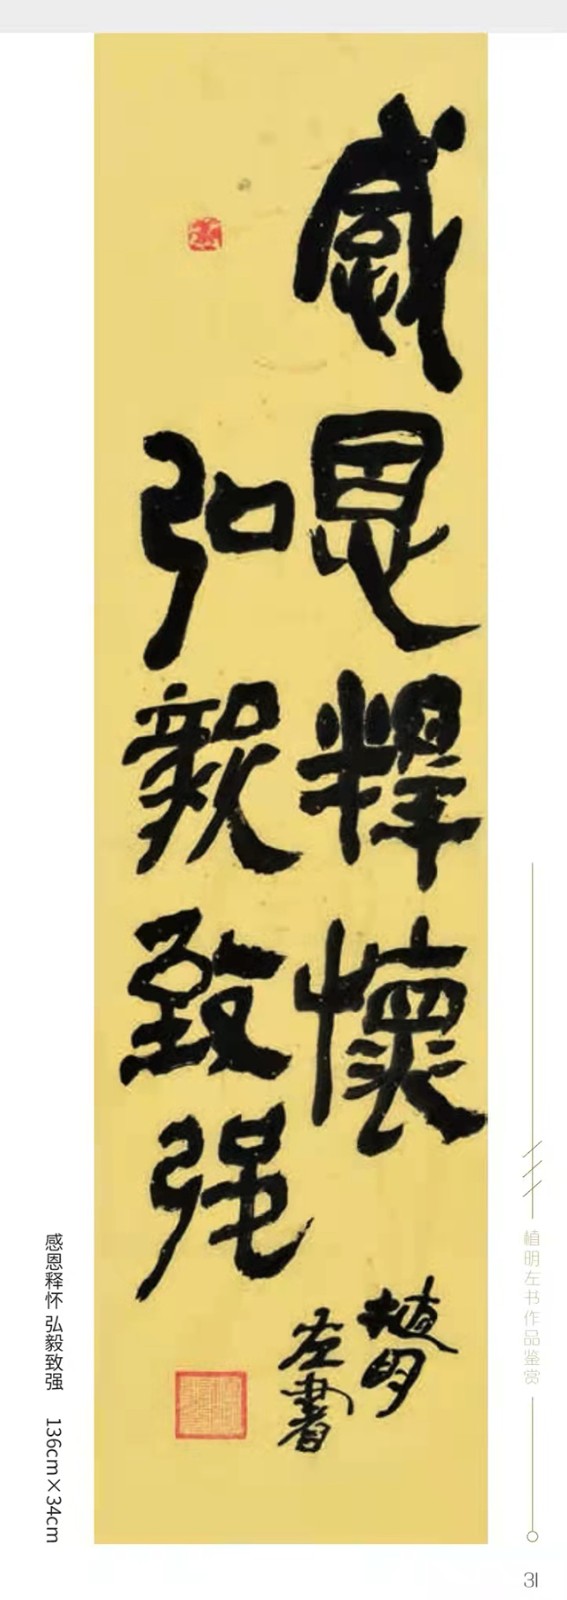 感恩釋懷
弘毅致强
植明
左書
感恩释怀 弘毅致强 136cm×34cm
植明左书作品鉴赏
31